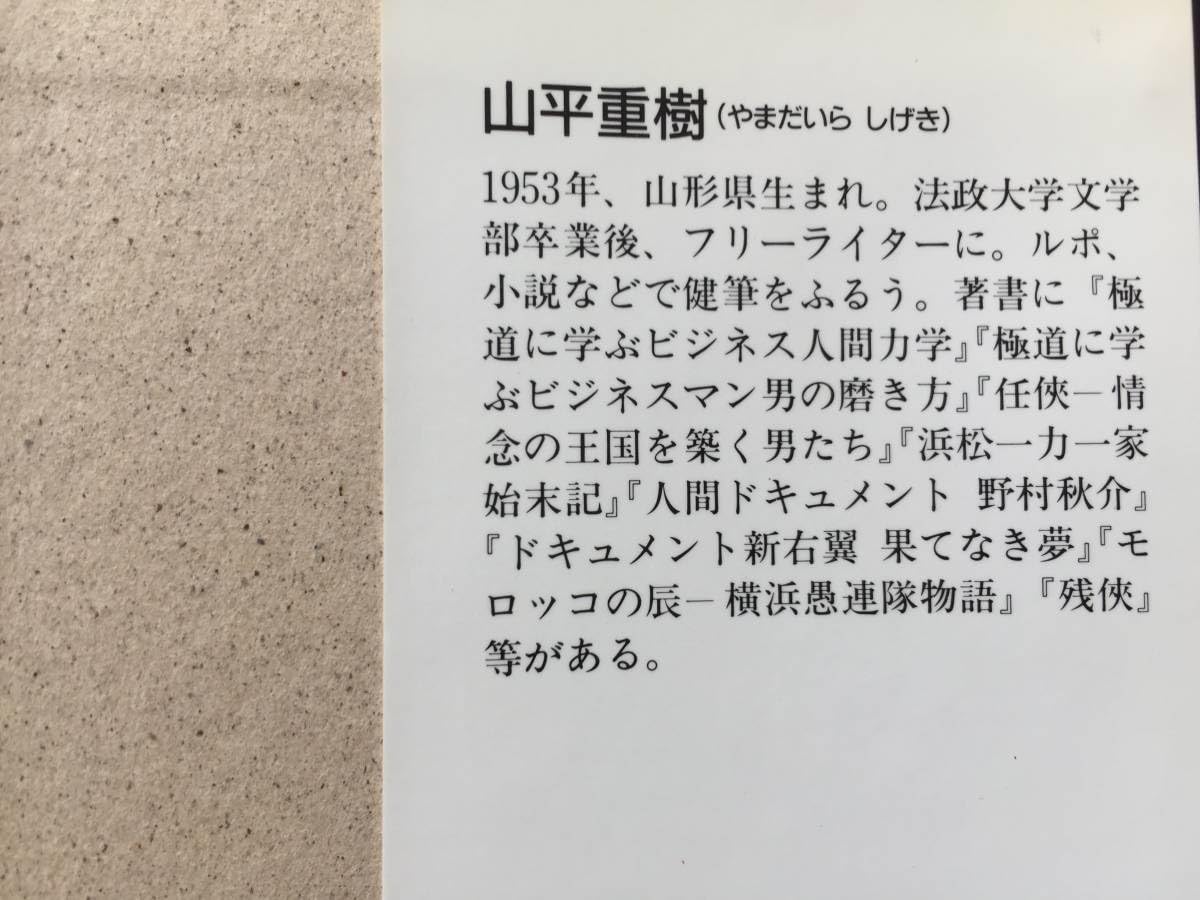 山平重樹(やまだいら しげき)
1953年、山形県生まれ。法政大学文学
部卒業後、フリーライターに。ルポ、
小説などで健筆をふるう。著書に『極
道に学ぶビジネス人間力学』『極道に学
ぶビジネスマン男の磨き方』『任俠―情
念の王国を築く男たち』『浜松一力一家
始末記』『人間ドキュメント 野村秋介』
『ドキュメント新右翼 果てなき夢』『モ
ロッコの辰―横浜愚連隊物語』『残俠』
等がある。